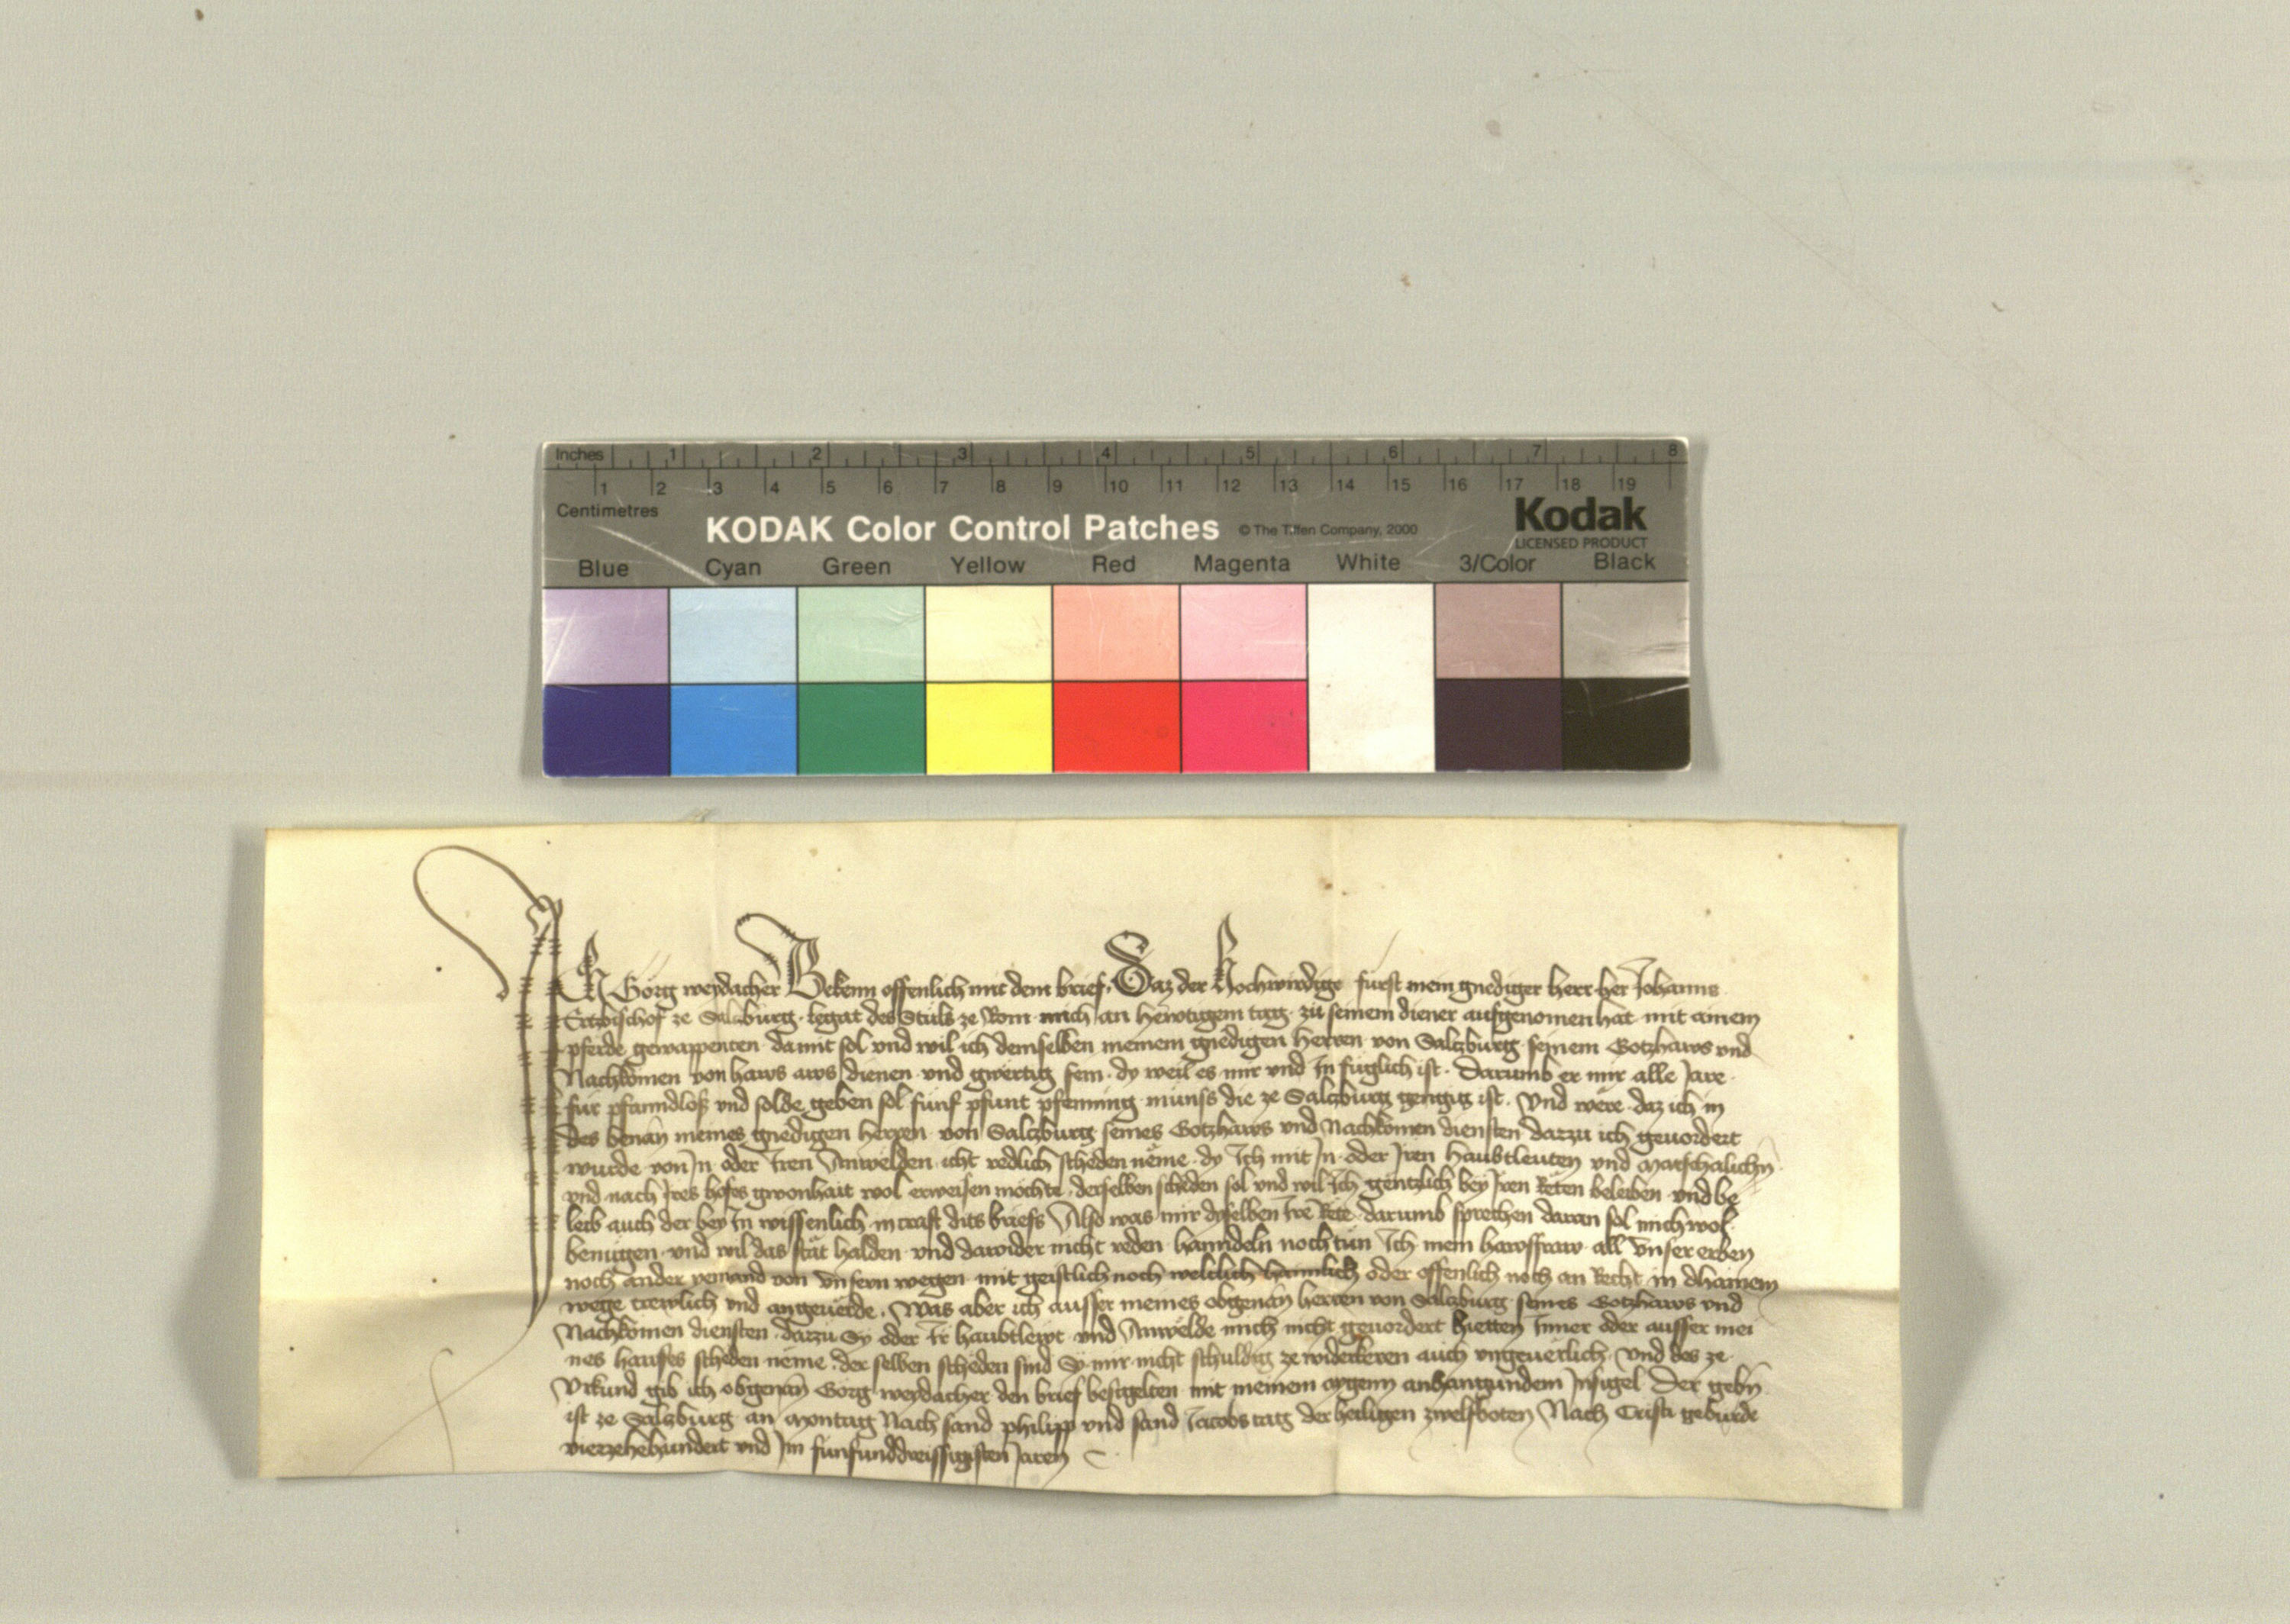 Inches 1 2 3 4 5 6 7 8
1 2 3 4 5 6 7 8 9 10 11 12 13 14 15 16 17 18 19
Centimetres
KODAK Color Control Patches © The Tiffen Company, 2000 Kodak
LICENSED PRODUCT
Blue Cyan Green Yellow Red Magenta White 3/Color Black
Ich Görg weydacher Bekenn offenlich mit dem brief, Daz der Hochwirdige fürst mein gnediger herr her Johanns
Ertzbischof ze Salzburg legat des Stuls ze Rom mich an hewtigem tag zu seinem diener aufgenomen hat mit ainem
pferde gewappenten damit sol vnd wil ich demselben meinem gnedigen herren von Salczburg seinem Gotzhaws vnd
Nachkomen von haws aws dienen vnd gwertig sein dy weil es mir vnd In füglich ist. Darumb er mir alle Jare
für pfanndloß vnd solde geben sol fünf pfunt pfenning münss die ze Salczburg gengig ist. Vnd were daz ich in
des benan meines gnedigen herren von Salczburg seines Gotzhaws vnd Nachkomen diensten darzu ich geuordert
wurde von In oder Iren Anwelden icht redlich scheden neme dy Ich mit In oder Iren haubtleuten vnd Marschalichn
vnd nach Ires hofes gwonhait wol erweisen möchte, derselben scheden sol vnd wil Ich gentzlich bey Iren Reten beleiben vnd be
leib auch der bey In wissenlich in craft dits briefs Also was mir dyselben Ire Rete darumb sprechen daran sol mich wol
benügen vnd wil das stät halden vnd dawider nicht reden hanndeln noch tün Ich mein hawsfraw all vnser erben
noch ander yemand von vnsern wegen mit geistlich noch weltlich haimlich oder offenlich noch an Recht in dhainem
wege trewlich vnd angeuerde. Was aber ich ausser meines obgenan herren von Salczburg seines Gotzhaws vnd
Nachkomen diensten darzu Sy oder Ir haubtlewt vnd Anwelde mich nicht geuordert hietten Inner oder ausser mei
nes hauses scheden neme, der selben scheden sind Sy mir nicht schuldig ze widerkeren auch vngeuerlich. Vnd des ze
Vrkund gib ich obgenan Görg weydacher den brief besigelten mit meinem aygenn anhangundem Insigel Der gebn
ist ze Salzburg an Montag Nach sand philipp vnd sand Jacobs tag der heiligen zwelfboten Nach Cristi geburde
vierzehehundert vnd Im fünfunddreissigisten Jaren